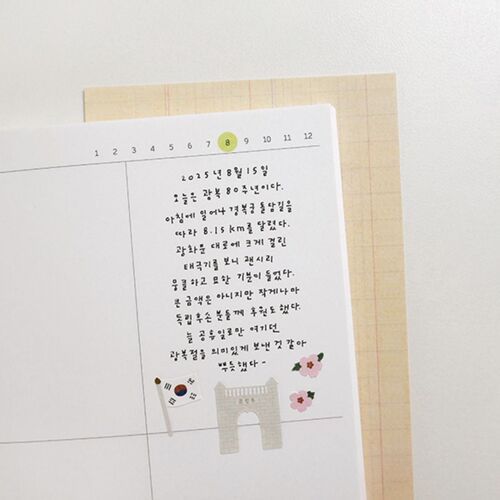 1 2 3 4 5 6 7 8 9 10 11 12
2025년 8월 15일
오늘은 광복 80주년이다.
아침에 일어나 경복궁 돌담길을
따라 8.15km를 달렸다.
광화문 대로에 크게 걸린
태극기를 보니 괜시리
뭉클하고 묘한 기분이 들었다.
큰 금액은 아니지만 작게나마
독립후손 분들께 후원도 했다.
늘 공휴일로만 여기던
광복절을 의미있게 보낸 것 같아
뿌듯했다-